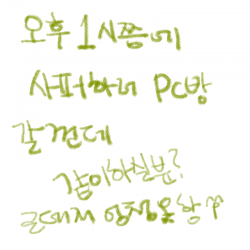 오후 1시쯤에
사퍼하러 PC방
갈껀데
같이하실분?
근데저 엄청못함ㅠ